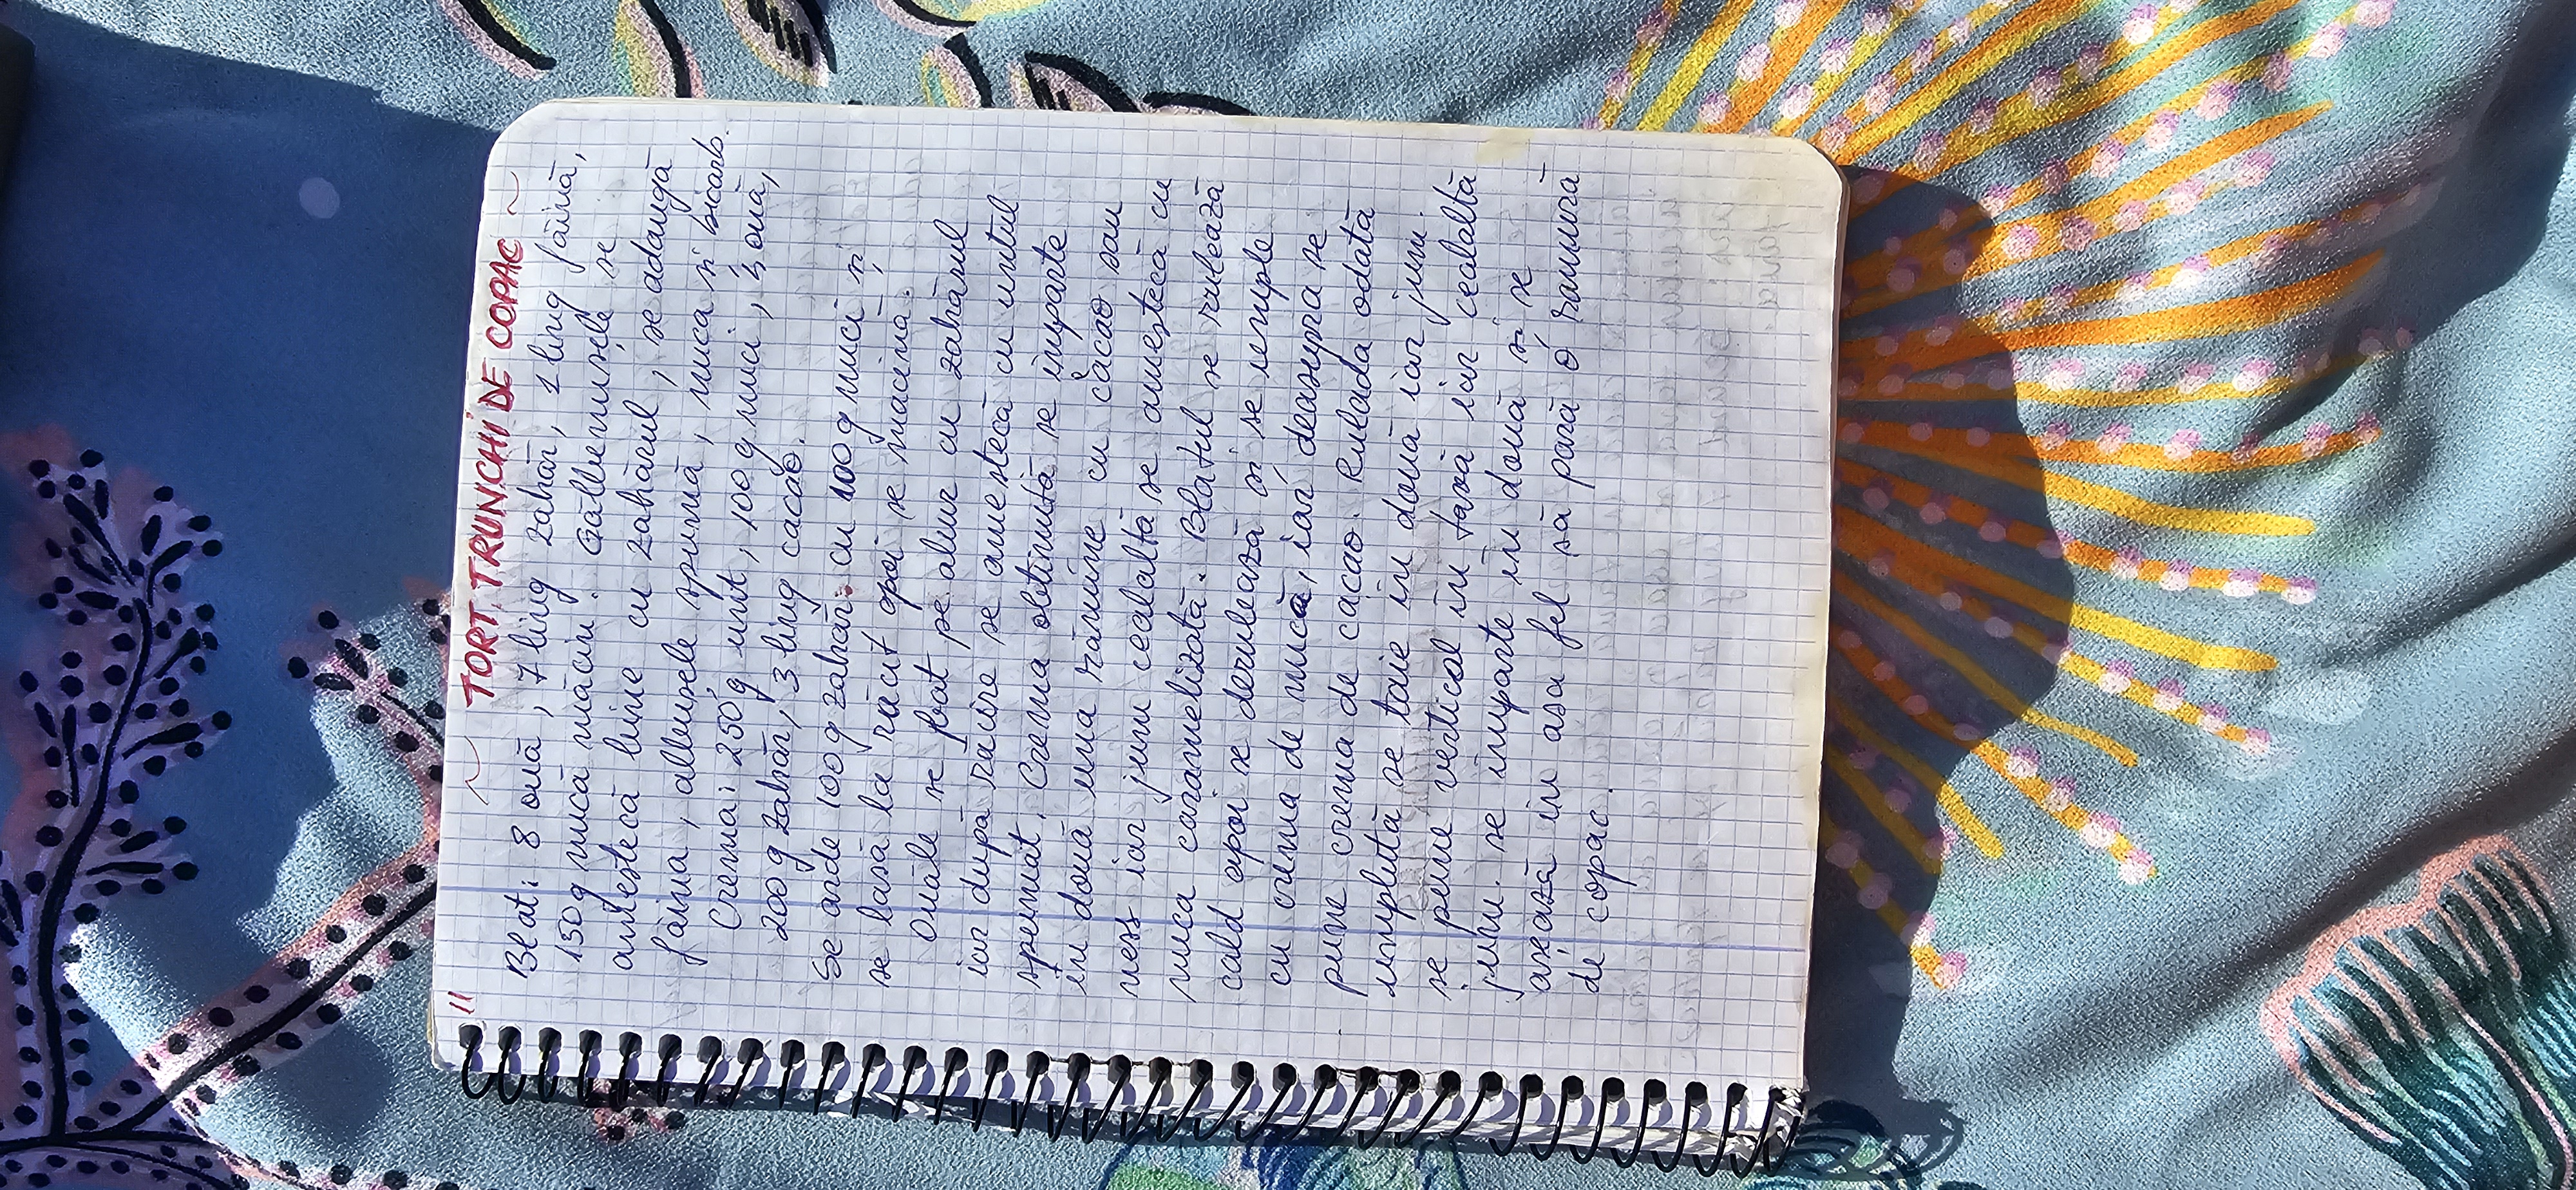 11 ~ TORT TRUNCHI DE COPAC ~
Blat: 8 ouă, 7 ling zahăr, 1 ling făină,
150 g nucă măcin. Gălbenușele se
amestecă bine cu zahărul, se adaugă
făina, albușele spumă, nuca și bicarb.
Crema: 250 g unt, 100 g nuci, 4 ouă,
200 g zahăr, 3 ling cacao.
Se arde 100 g zahăr cu 100 g nuci și
se lasă la răcit apoi se macină.
Ouăle se bat pe abur cu zahărul
iar după răcire se amestecă cu untul
spumat. Crema obținută se împarte
în două una rămîne cu cacao sau
ness iar jum cealaltă se amestecă cu
nuca caramelizată. Blatul se rulează
cald apoi se derulează și se umple
cu crema de nucă, iar deasupra se
pune crema de cacao. Rulada odată
umplută se taie în două iar jum.
se pune vertical în tavă iar cealaltă
jum. se împarte în două și se
așează în asa fel să pară o ramură
de copac.